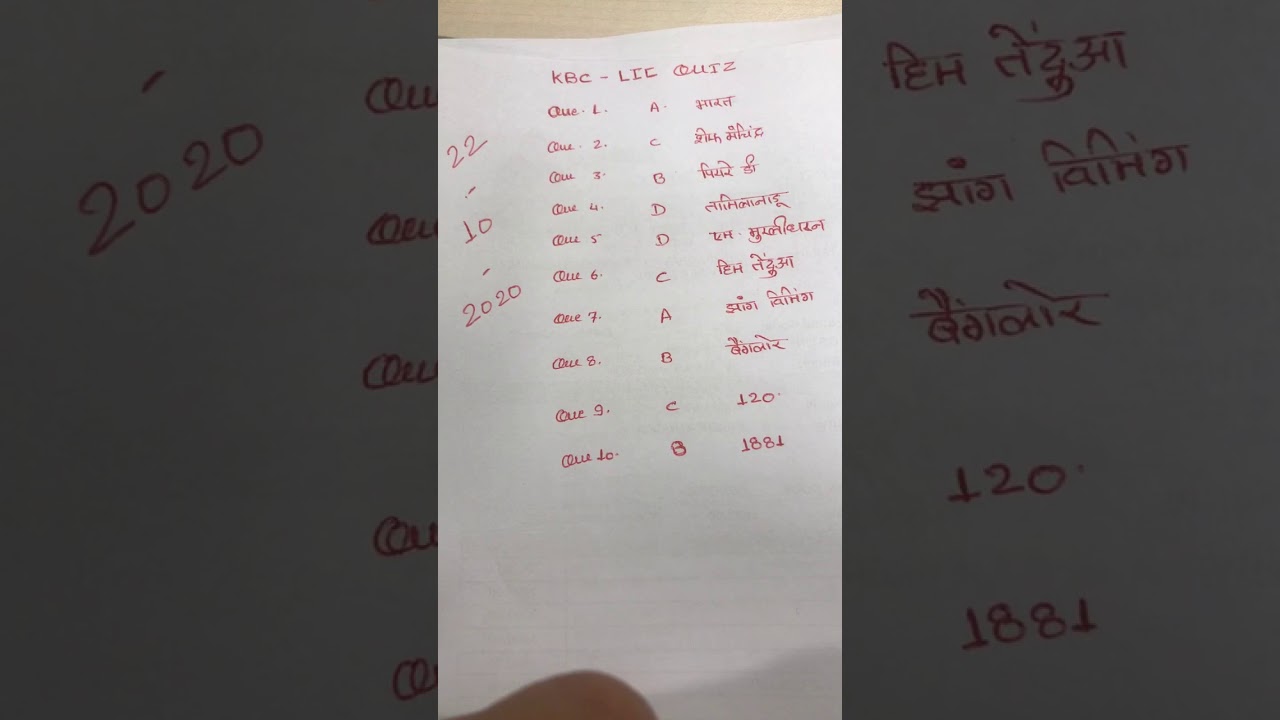 KBC - LIC QUIZ
Que. 1. A. भारत
Que. 2. C शेफ मंचिंद्र
Que 3. B पियरे डी
Que 4. D तामिलनाडू
Que 5 D एम. मुरलीधरन
Que 6. C हिम तेंदुआ
Que 7. A झांग विमिंग
Que 8. B बैंगलोर
Que 9. C 120.
Que 10. B 1881
22
10
2020